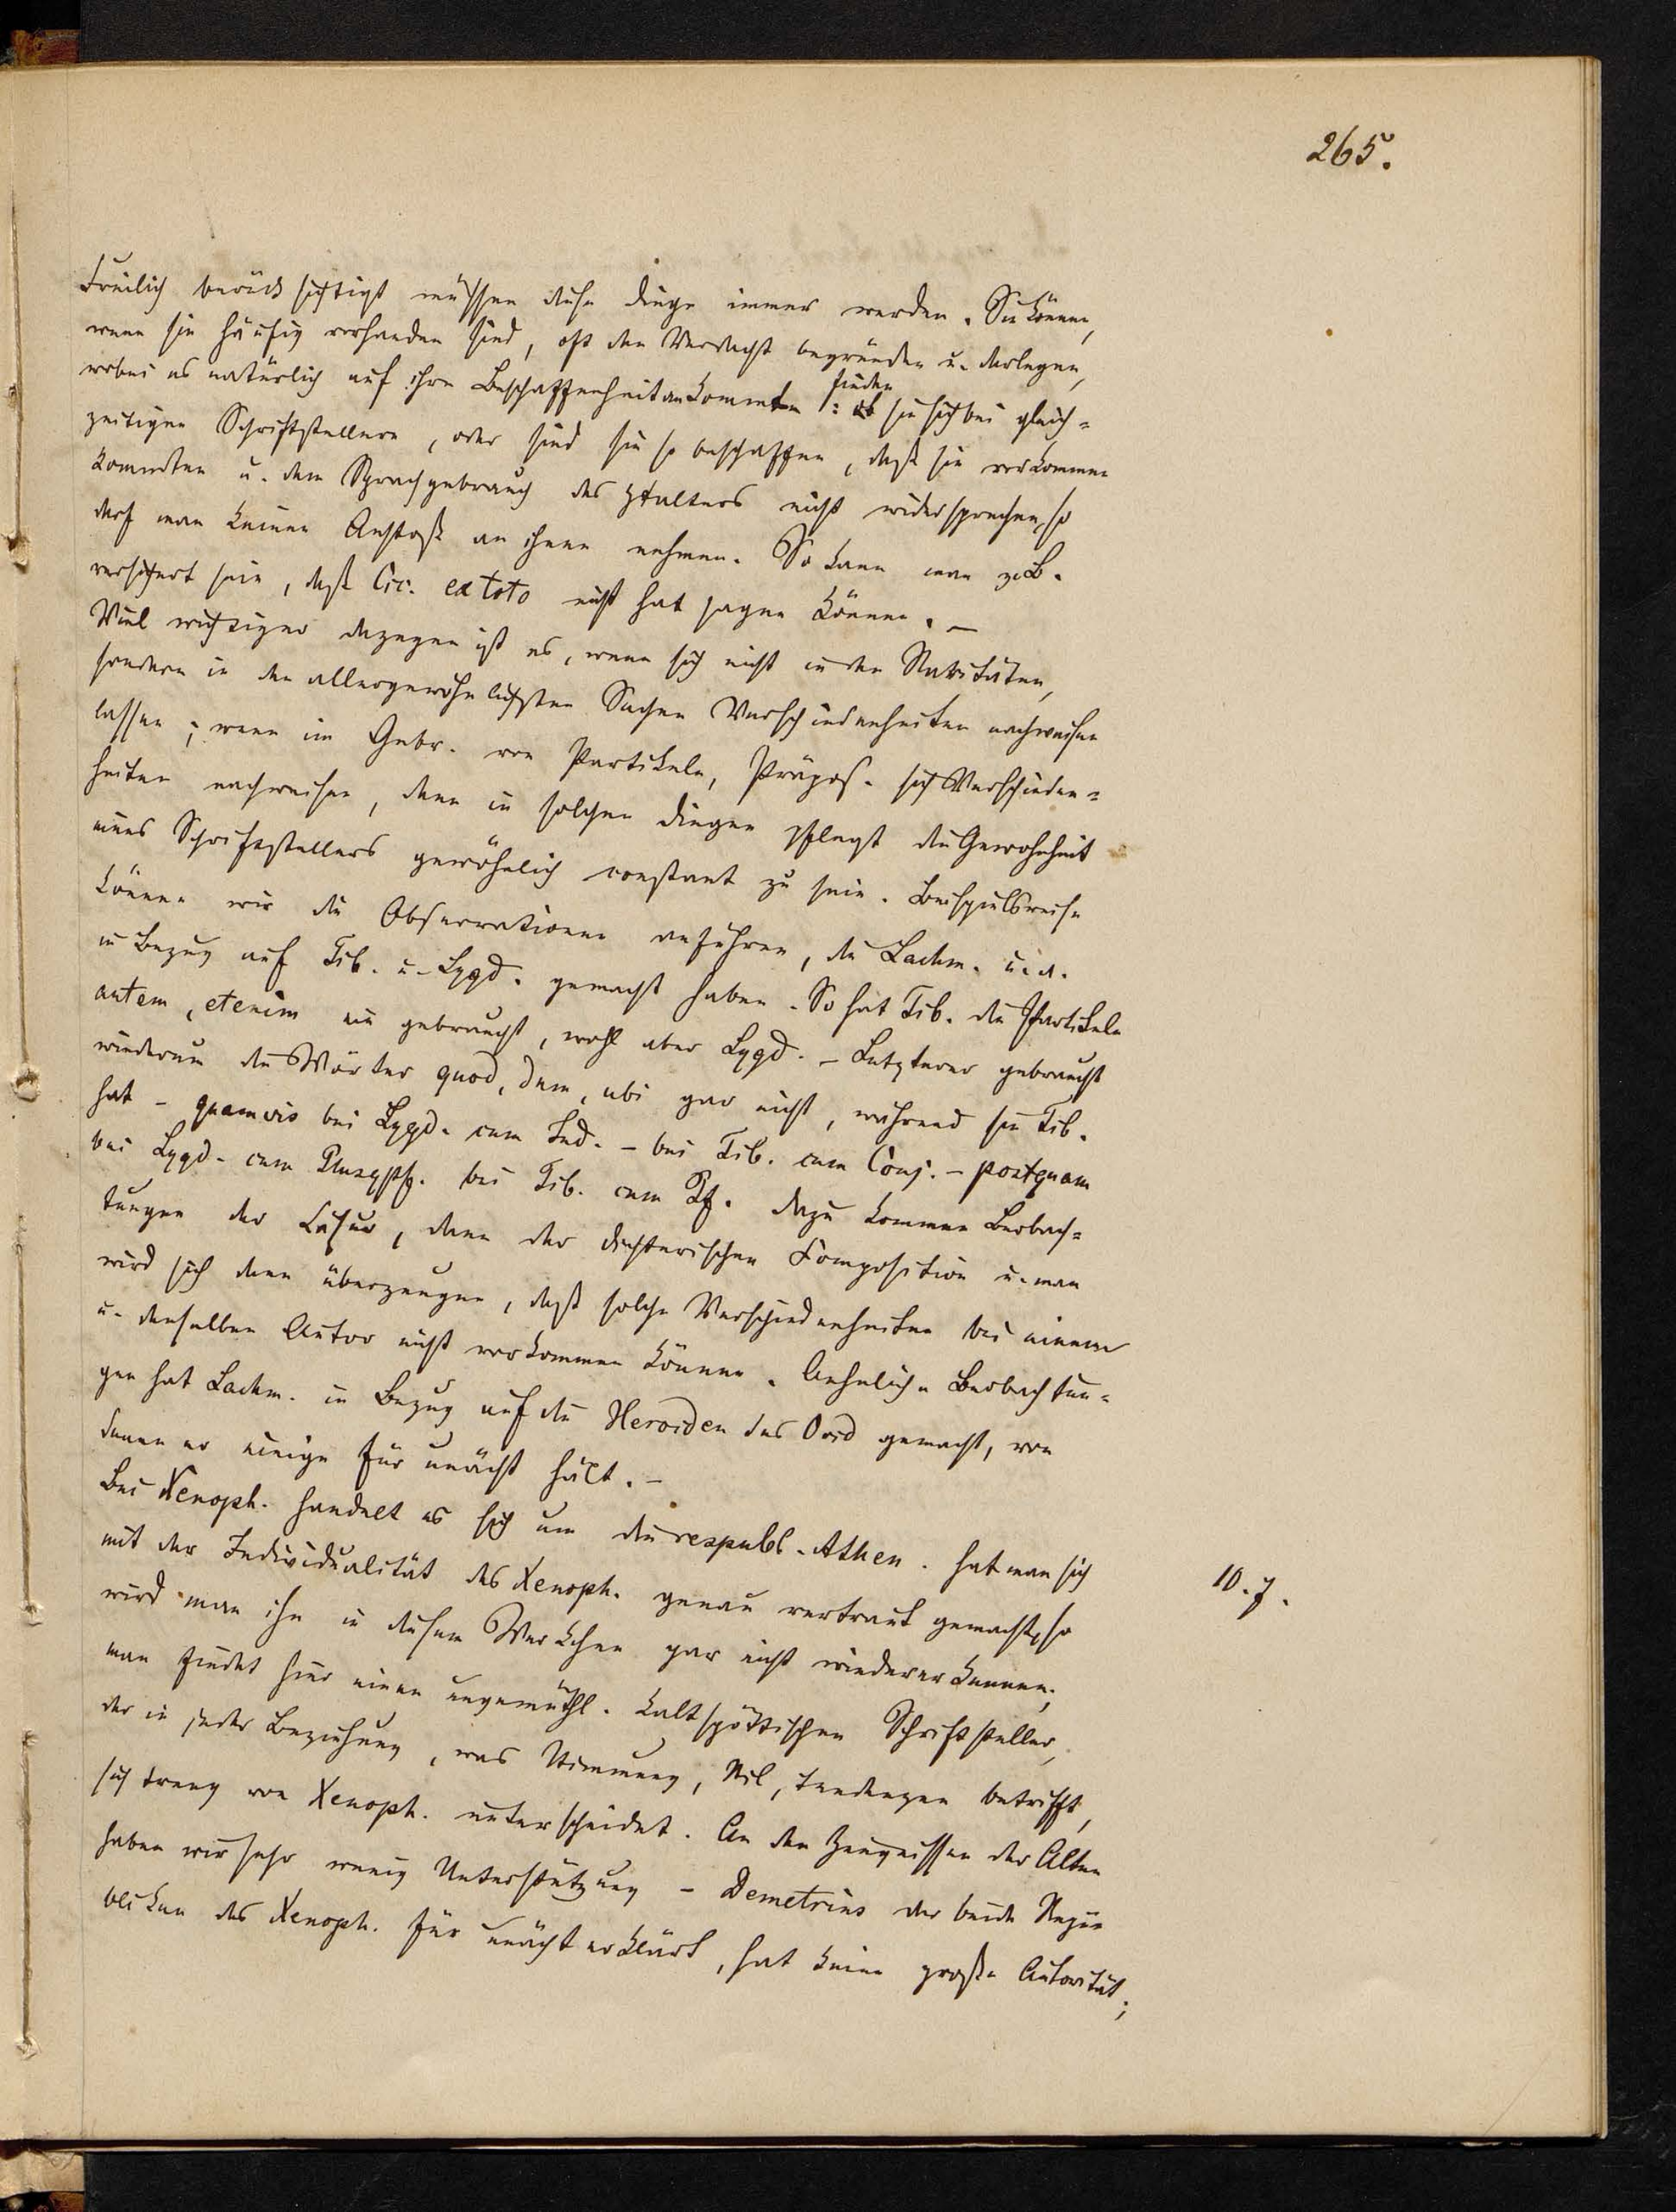 265.
Freilich berücksichtigt müssen diese Dinge immer werden. Sie können,
wenn sie häufig vorhanden sind, oft den Verdacht begründen u. darlegen,
wobei es natürlich auf ihre Beschaffenheit ankommt: finden sie sich bei gleich=
zeitigen Schriftstellern, oder sind sie so beschaffen, daß sie vorkommen
konnten u. dem Sprachgebrauch des Ztalters nicht widersprechen, so
darf man keinen Anstoß an ihnen nehmen. So kann man z.B.
versichert sein, daß Cic. ex toto nicht hat sagen können. –
Viel wichtiger dagegen ist es, wenn sich nicht in den Raritäten,
sondern in den allergewöhnlichsten Sachen Verschiedenheiten nachweisen
lassen; wenn im Gebr. von Partikeln, Präpos. sich Verschieden=
heiten nachweisen, denn in solchen Dingen pflegt die Gewohnheit
eines Schriftstellers gewöhnlich constant zu sein. Beispielsweise
können wir die Observationen anführen, die Lachm. u. a.
in Bezug auf Tib. u. Lygd. gemacht haben. So hat Tib. die Partikeln
autem, etenim nie gebraucht, wohl aber Lygd. – Letzterer gebraucht
wiederum die Wörter quod, dum, ubi gar nicht, während sie Tib.
hat – quamvis bei Lygd. cum Ind. – bei Tib. cum Conj. – postquam
bei Lygd. cum Plusqpf. bei Tib. cum Pf. Dazu kommen Beobach=
tungen der Cäsur, dann der dichterischen Composition u. man
wird sich dann überzeugen, daß solche Verschiedenheiten bei einem
u. denselben Autor nicht vorkommen können. Aehnliche Beobachtun=
gen hat Lachm. in Bezug auf die Heroiden des Ovid gemacht, von
denen er einige für unächt hält. –
Bei Xenoph. handelt es sich um die respubl. Athen. Hat man sich
mit der Individualität des Xenoph. genau vertraut gemacht, so
10. 7.
wird man ihn in diesem Werkchen gar nicht wiedererkennen;
man findet hier einen ungemüthl. kaltspöttischen Schriftsteller,
der in jeder Beziehung, was Stimmung, Stil, Tendenzen betrifft,
sich streng von Xenoph. unterscheidet. An den Zeugnissen der Alten
haben wir sehr wenig Unterstützung – Demetrius der beide Repu
bliken des Xenoph. für unächt erklärt, hat keine große Autorität;